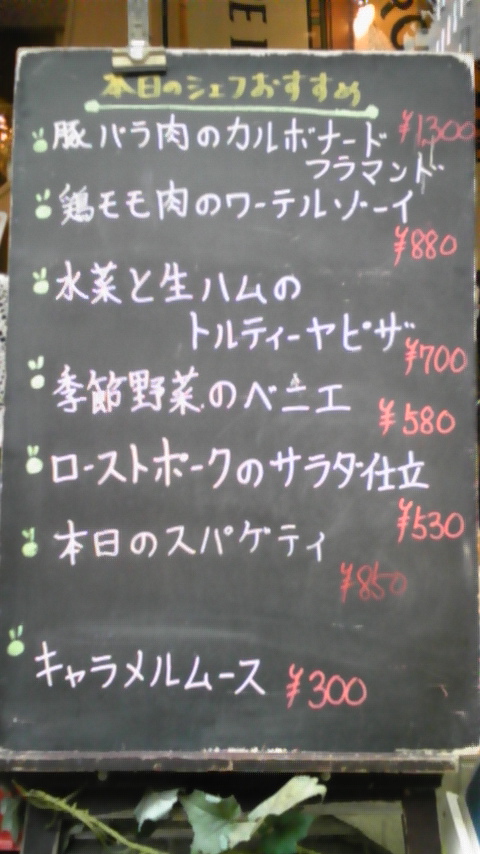 本日のシェフおすすめ
豚バラ肉のカルボナード ¥1,300
フラマンド
鶏モモ肉のワーテルゾーイ
¥880
水菜と生ハムの
トルティーヤピザ
¥700
季節野菜のベニエ
¥580
ローストポークのサラダ仕立
¥530
本日のスパゲティ
¥850
キャラメルムース ¥300